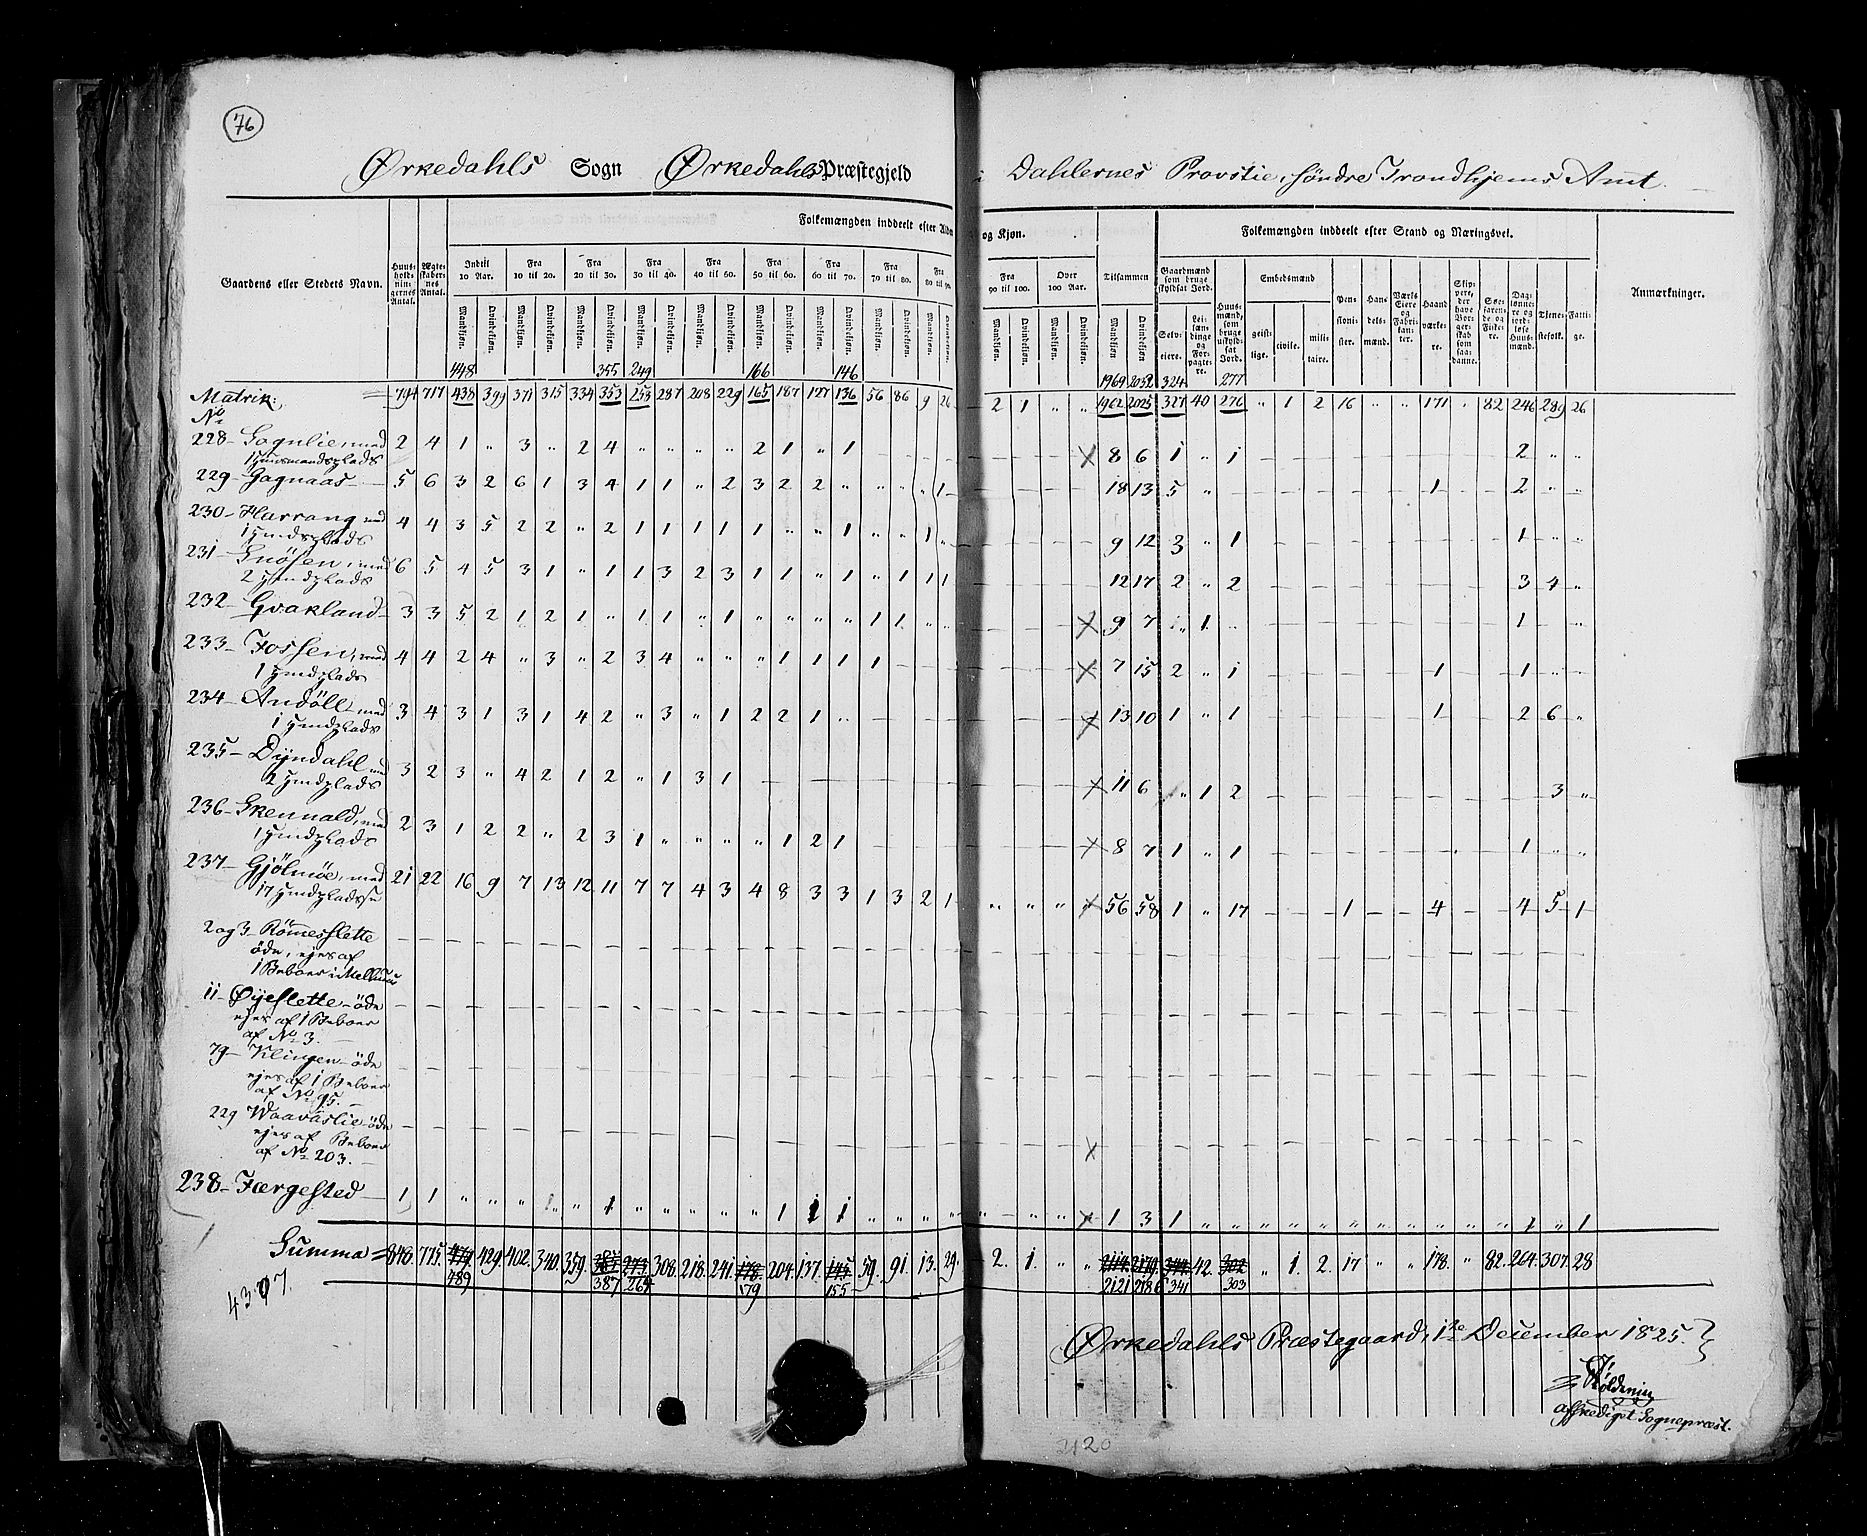 76
Ørkedahls Sogn Ørkedahls Præstegjeld i Dahlernes Provstie, Söndre Trondhjems Amt.
Folkemængden inddeelt efter Alder og Kjøn. Folkemængden inddeelt efter Stand og Næringsvei.
Gaardens eller Stedets Navn.
Huus-holdnin-gernes Antal. Ægte-skaber-nes Antal. Indtil 10 Aar. Fra 10 til 20. Fra 20 til 30. Fra 30 til 40. Fra 40 til 60. Fra 50 til 60. Fra 60 til 70. Fra 70 til 80. Fra 80 til 90. Fra 90 til 100. Over 100 Aar. Tilsammen
Gaardmænd som bruge skyldsat Jord. Huus-mænd, som bruge uskyld-sat Jord. Embedsmænd Pen-sioni-ster. Han-dels-mænd. Værks Eiere og Fabri-kan-ter. Haand-værke-re. Skip-pere, der have Bor-ger-skab som saa-danne. Søe-faren-de og Fiske-re. Dag-lønne-re og jord-løse Huus-mænd. Tjene-stefolk. Fatti-ge. Anmærkninger.
Mandkjøn. Qvindekjøn. Selv-eiere. Lei-læn-dinge og For-pagte-re. geist-lige. civile. mili-taire.
448 355 249 166 146 1969 2052 324 277
Matrik: 794 717 438 399 371 315 334 353 253 287 208 229 165 187 127 136 56 86 9 26 2 1 „ „ 1962 2025 327 40 276 „ 1 2 16 „ „ 171 „ 82 246 289 26
No
228- Sognlie, med 2 4 1 „ 3 „ 2 4 „ „ „ „ 2 1 „ 1 8 6 1 „ 1 2 „ „
1 Huusmandsplads
229- Gagnaas 5 6 3 2 6 1 3 4 1 1 „ 2 3 2 2 „ „ „ „ 1 18 13 5 „ 1 2 „ „
230- Harrang med 4 4 3 5 2 2 „ 2 1 1 1 1 1 „ „ 1 „ „ 1 „ 9 12 3 „ 1 1 „ „
1 Hmdsplads
231- Snösen, med 6 5 4 5 3 1 „ 1 1 3 2 3 1 1 „ 1 „ 1 1 1 12 17 2 „ 2 3 4 „
2 Hmdplads
232- Gvakland 3 3 5 2 1 2 1 „ 1 1 „ 1 „ „ „ „ 1 1 „ „ 9 7 „ 1 „ 1 „
233- Fossen, med 4 4 2 4 „ 3 „ 2 3 4 „ „ „ 1 1 1 1 7 15 2 „ 1 1 1
1 Hmdplads
234- Andöll med 3 4 3 1 3 1 4 2 „ 3 „ 1 2 2 1 „ 13 10 1 „ 1 1 2 6 „
1 Hmdplads
235- Dyndahl med 3 2 3 „ 4 2 1 2 „ 1 3 1 11 6 „ 1 2 3 „
2 Hmdplads
236- Skenald, med 2 3 1 2 2 „ 2 3 1 „ „ „ „ 1 2 1 8 7 1 „ 1 1 „ „
1 Hmdplads
237- Gjölmöe, med 21 22 16 9 7 13 12 11 7 7 4 3 4 8 3 3 1 3 2 1 „ „ „ „ 56 58 1 „ 17 1 4 4 5 1
17 Hmdpladse
2 og 3- Römesslette
öde, ejes af
1 Beboer i Melbuus
11- Øyeslette- öde
ejes af 1 Beboer
af No 3.
79- Klingen- öde
ejes af 1 Beboer
af No 95.
229 Waavaslie- öde
ejes af Beboer
af No 203.
238- Færgested 1 1 „ „ „ 1 „ „ 1 „ „ „ „ „ 1 1 1 „ „ „ „ 1 3 1 „ „ „ „ „ „ „ „ „ „ „ 1 „ 1
Summa = 848. 775. 479. 429. 402. 340. 359. 273. 308. 218. 241. 178. 204. 137. 145 59. 91. 13. 29. 2. 1. „ „ 2114. 2179. 344. 42. 302 „ 1. 2. 17 „ „ 178. „ 82. 264. 307. 28
489 387 264 179 155 2121 2186 341 303
4307.
Ørkedahls Præstegaard, 1te December 1825.
afskediget Sognepræst.
2120